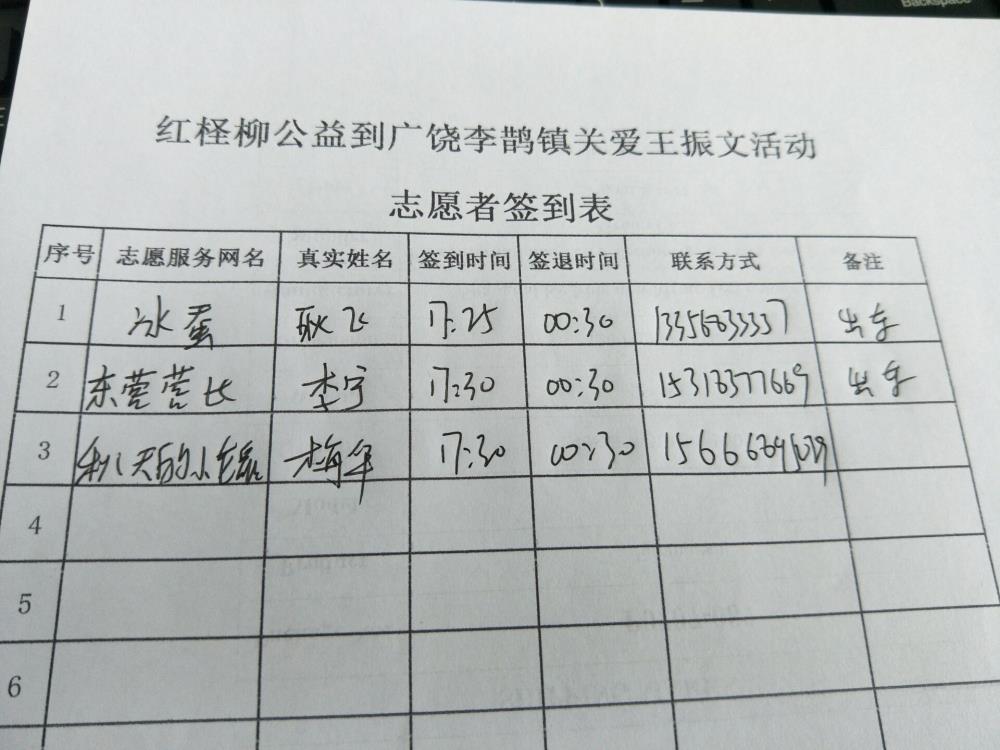 红柽柳公益到广饶李鹊镇关爱王振文活动
志愿者签到表
序号 志愿服务网名 真实姓名 签到时间 签退时间 联系方式 备注
1 冰蛋 耿飞 17:25 00:30 出车
2 东营营长 李宁 17:30 00:30 15313577669 出车
3 秋天的小 梅华 17:30 00:30
4
5
6
Backspace